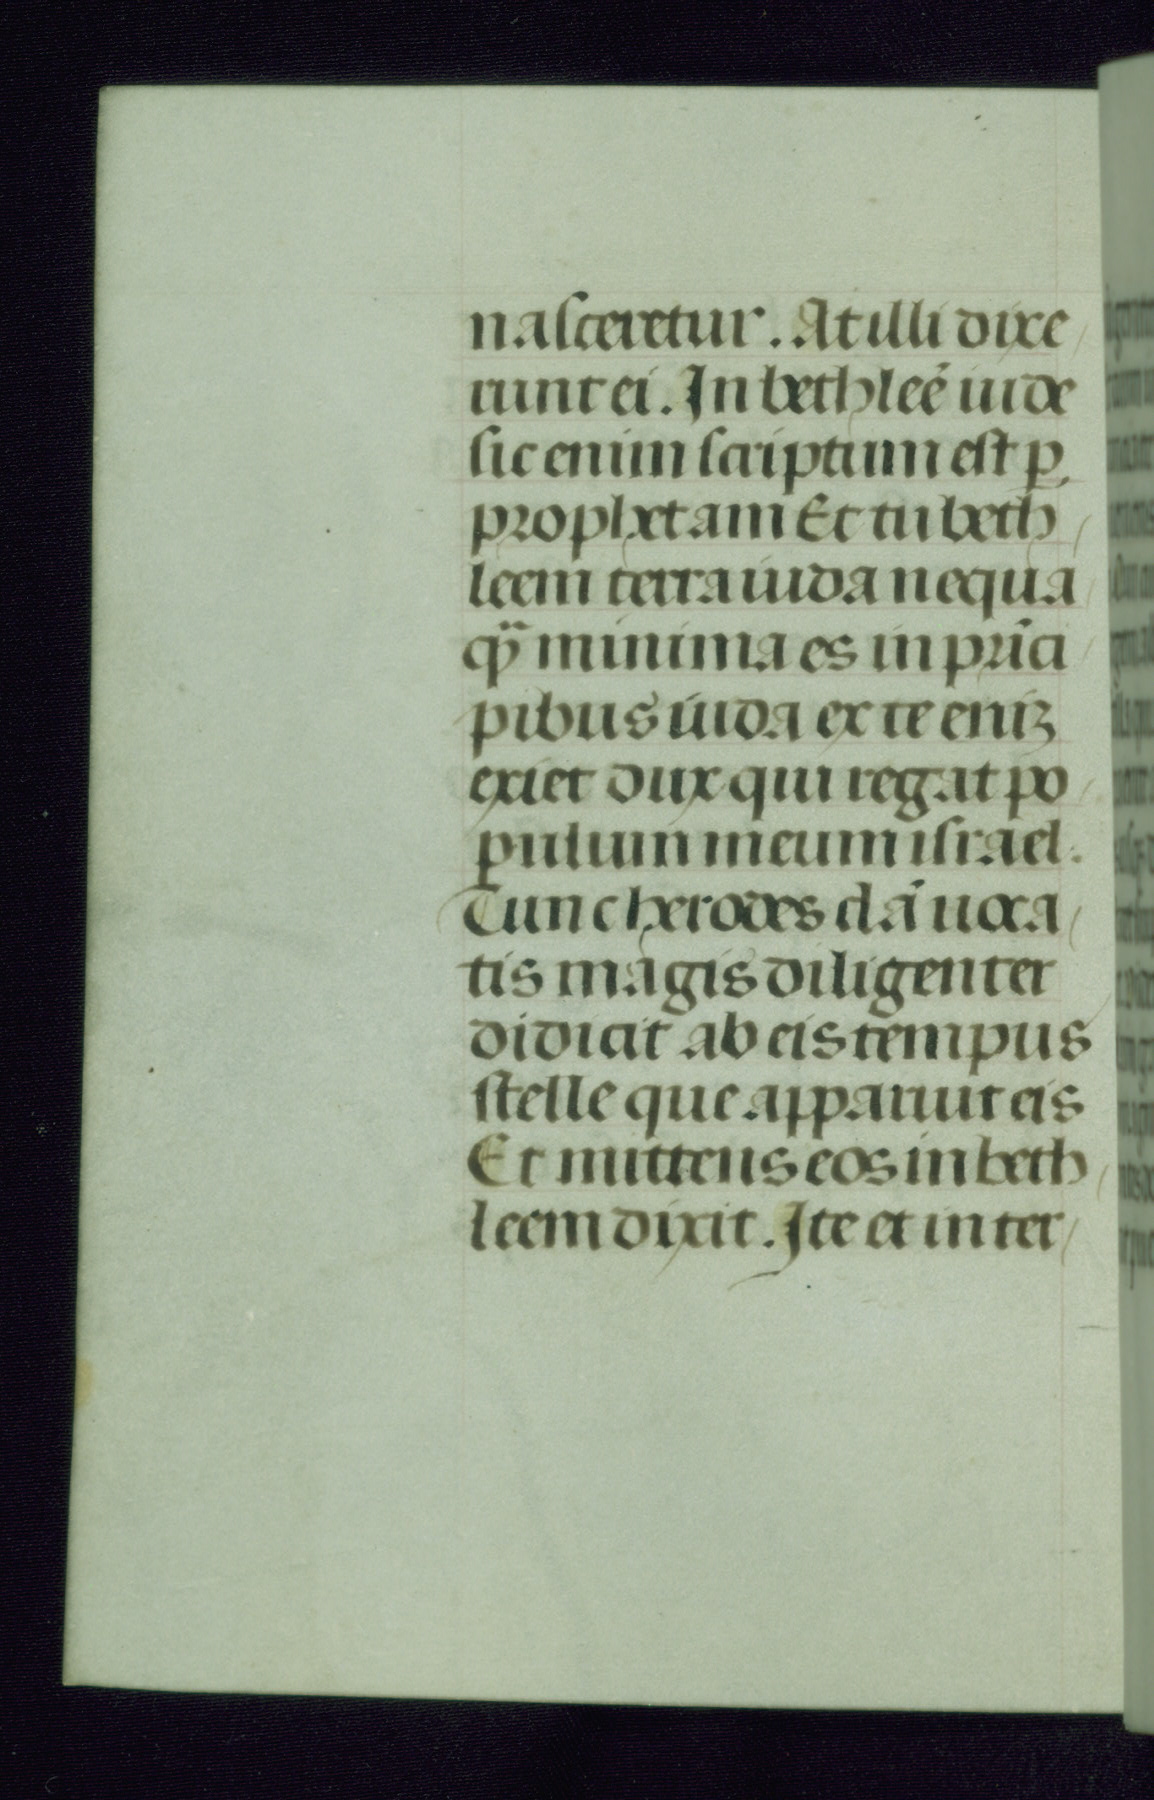 nasceretur. At illi dixe
runt ei. In bethleē iude
sic enim scriptum est ꝑ
prophetam Et tu beth
leem terra iuda nequa
qȝ̈ minima es in prīci
pibus iuda ex te eniȝ
exiet dux qui regat po
pulum meum israel.
Tunc herodes clā uoca
tis magis diligenter
didicit ab eis tempus
stelle que apparuit eis
Et mittens eos in beth
leem dixit. Ite et inter